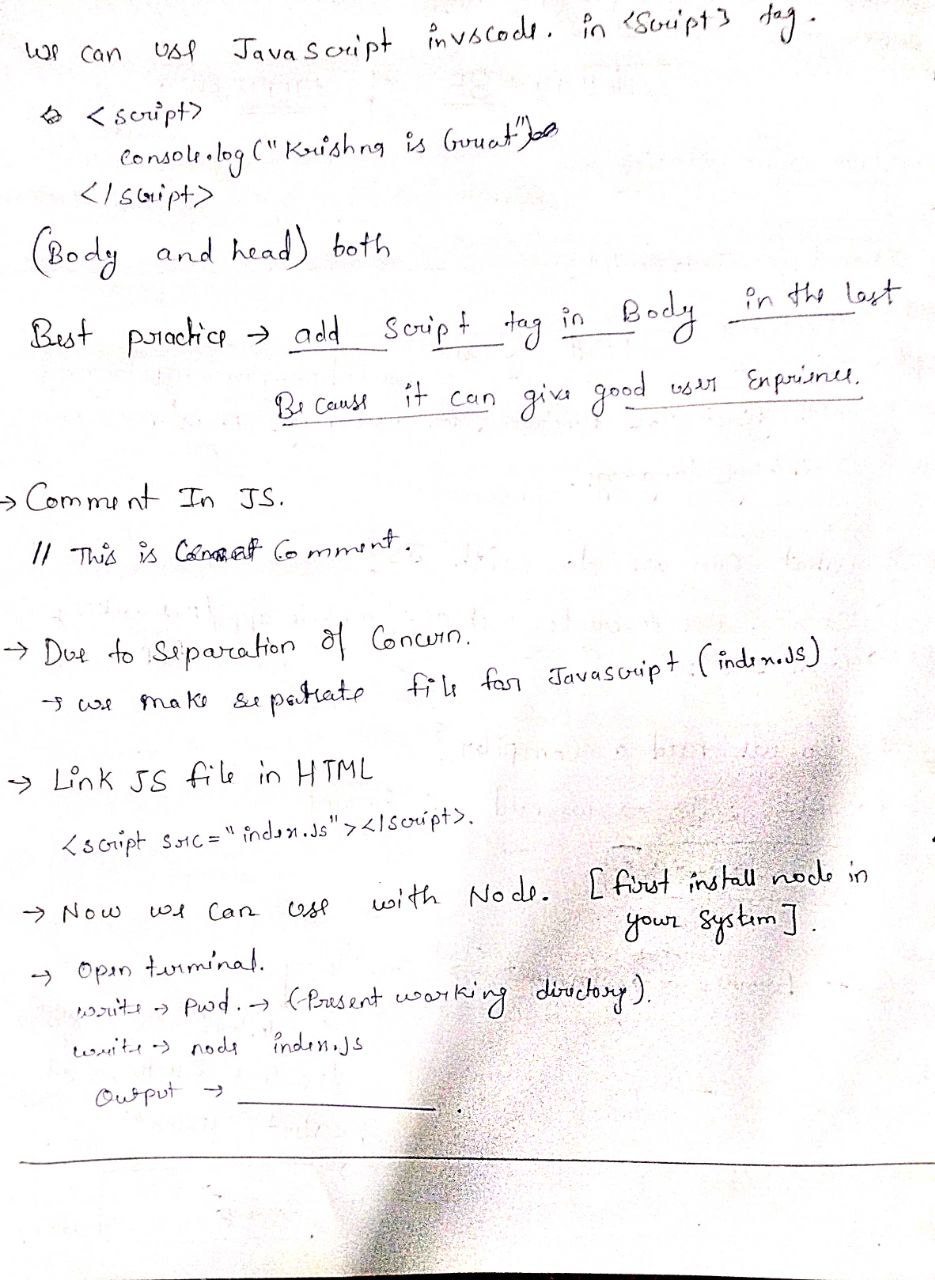 we can use JavaScript in vscode. in {Script} tag.
<script>
console.log("Krishna is Great")
</script>
(Body and head) both
Best practice → add Script tag in Body in the last
Because it can give good user Exprience.
→ Comment In JS.
// This is Comment.
→ Due to Separation of Concern.
→ we make separate file for Javascript. (index.Js)
→ Link JS file in HTML
<script src="index.Js"></script>.
→ Now we can use with Node. [first install node in
your system].
→ Open terminal.
write → Pwd. → (Present working directory).
write → node index.js
Output →